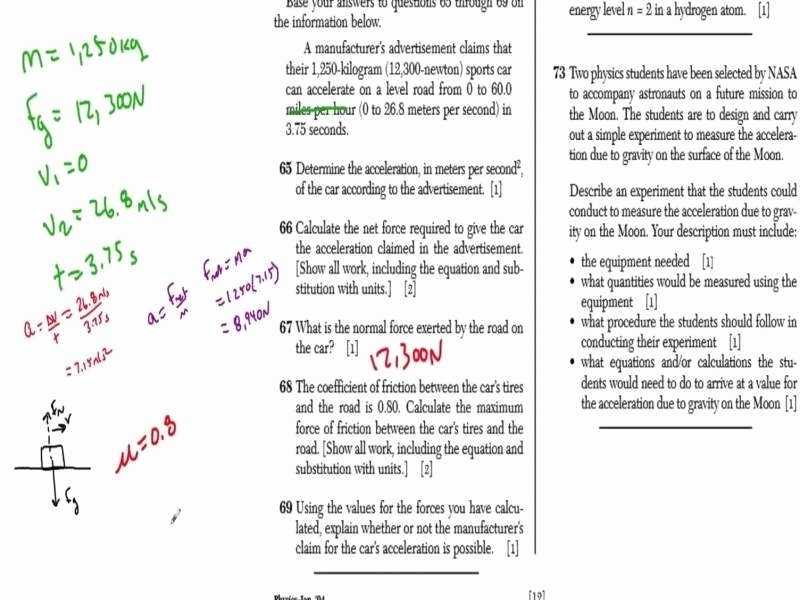 m = 1,250kg
Fg = 12,300N
V1 = 0
V2 = 26.8 m/s
t = 3.75 s
a = ΔV/t = 26.8m/s / 3.75s
= 7.15m/s²
a = Fnet/m
Fnet = ma
= 1250(7.15)
= 8,940N
FN
V
Fg
μ = 0.8
Base your answers to questions 65 through 69 on
the information below.
A manufacturer's advertisement claims that
their 1,250-kilogram (12,300-newton) sports car
can accelerate on a level road from 0 to 60.0
miles per hour (0 to 26.8 meters per second) in
3.75 seconds.
65 Determine the acceleration, in meters per second²,
of the car according to the advertisement. [1]
66 Calculate the net force required to give the car
the acceleration claimed in the advertisement.
[Show all work, including the equation and sub-
stitution with units.] [2]
67 What is the normal force exerted by the road on
the car? [1]
12,300N
68 The coefficient of friction between the car's tires
and the road is 0.80. Calculate the maximum
force of friction between the car's tires and the
road. [Show all work, including the equation and
substitution with units.] [2]
69 Using the values for the forces you have calcu-
lated, explain whether or not the manufacturer's
claim for the car's acceleration is possible. [1]
energy level n = 2 in a hydrogen atom. [1]
73 Two physics students have been selected by NASA
to accompany astronauts on a future mission to
the Moon. The students are to design and carry
out a simple experiment to measure the accelera-
tion due to gravity on the surface of the Moon.
Describe an experiment that the students could
conduct to measure the acceleration due to grav-
ity on the Moon. Your description must include:
• the equipment needed [1]
• what quantities would be measured using the
equipment [1]
• what procedure the students should follow in
conducting their experiment [1]
• what equations and/or calculations the stu-
dents would need to do to arrive at a value for
the acceleration due to gravity on the Moon [1]
[19]